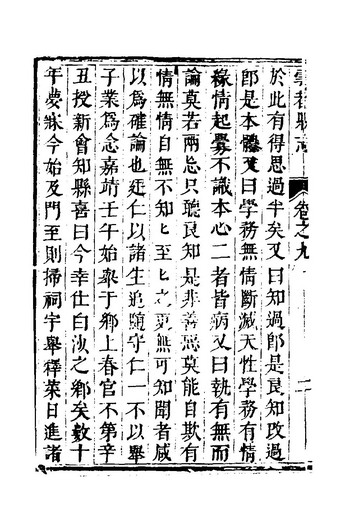 卷之九
於此有得思過半矣又曰知過即是良知改過
即是本體又曰學務無情斷滅天性學務有情
緣情起釁不識本心二者皆病又曰執有無而
論莫若兩忘只聽良知是非善惡莫能自欺有
情無情自無不知已至已之更無可知聞者咸
以為確論也廷仁以諸生追隨守仁一不以舉
子業為念嘉靖壬午始舉于鄉上春官不第辛
丑授新會知縣喜曰今幸仕白沙之鄉矣數十
年夢寐今始及門至則掃祠宇舉釋菜日進諸